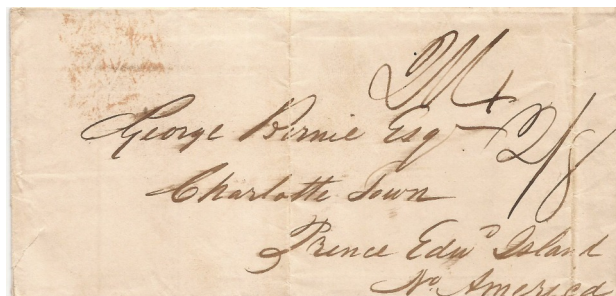 2/8
George Birnie Esqr
Charlotte Town
Prince Edwd Island
No. America